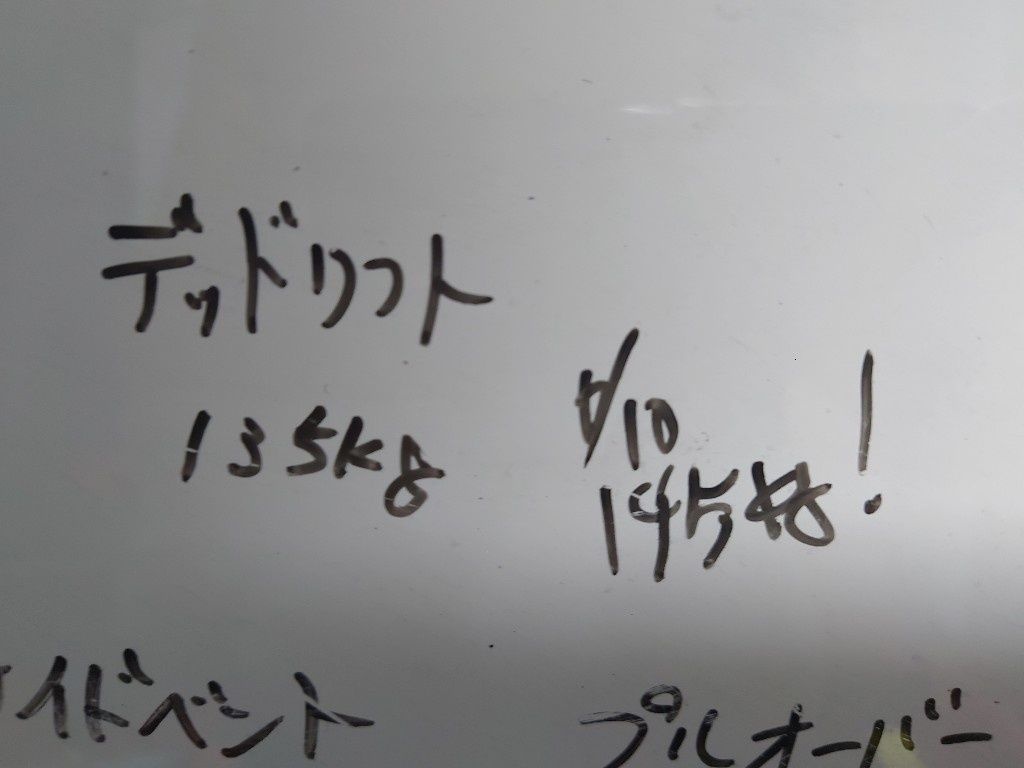 デッドリフト
135kg
/10
145kg!
イドベント
プルオーバー